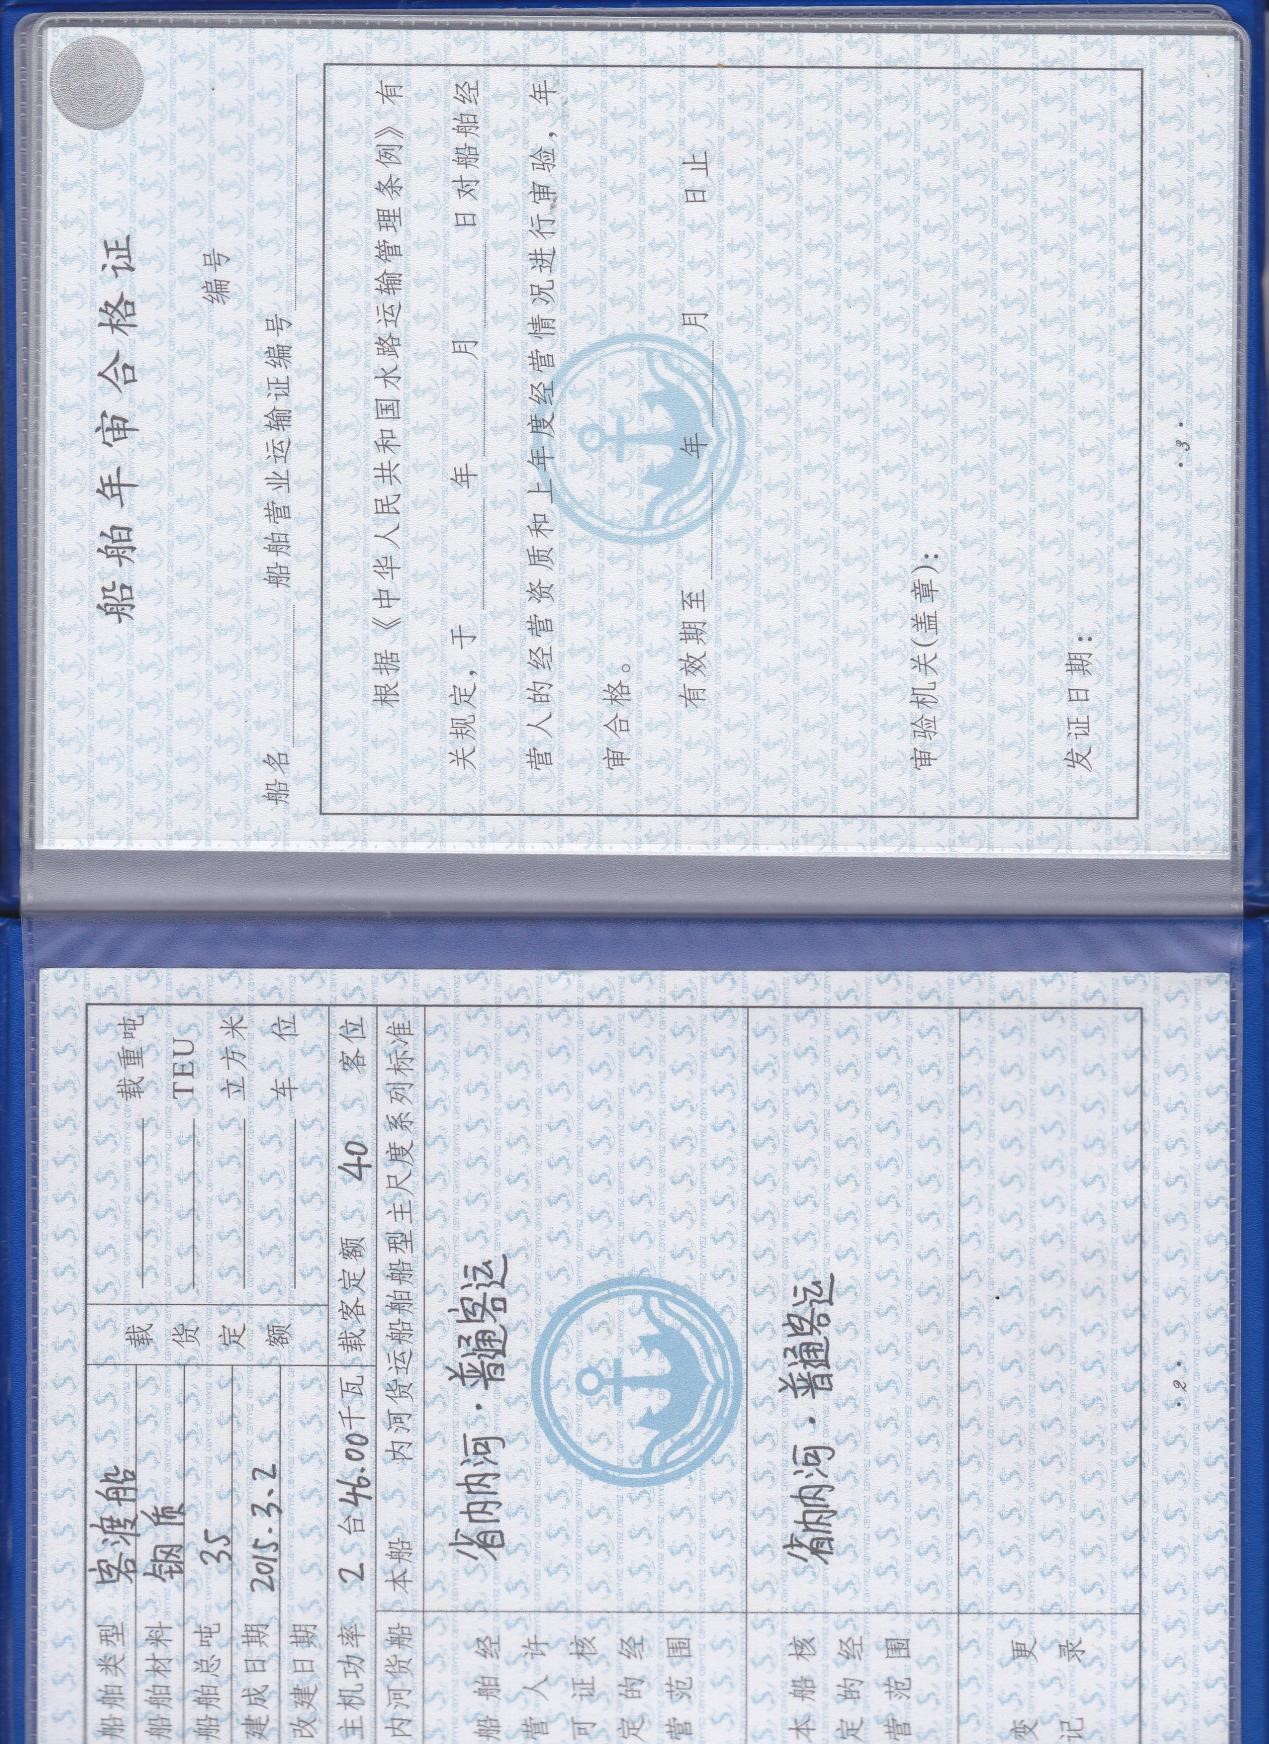 船舶类型 客渡船
船舶材料 钢质
船舶总吨 35
建成日期 2015.3.2
改建日期
载货定额
载重吨
TEU
立方米
车 位
主机功率 2 台 46.00 千瓦 载客定额 40 客位
内河货船 本船 内河货运船舶船型主尺度系列标准
船舶经
营人许
可证核
定的经
营范围
省内内河·普通客运
本船核
定的经
营范围
省内内河·普通客运
变 更
记 录
·2·
船舶年审合格证
编号
船名 船舶营业运输证编号
根据《中华人民共和国水路运输管理条例》有
关规定，于 年 月 日对船舶经
营人的经营资质和上年度经营情况进行审验，年
审合格。
有效期至 年 月 日止
审验机关(盖章)：
发证日期：
·3·